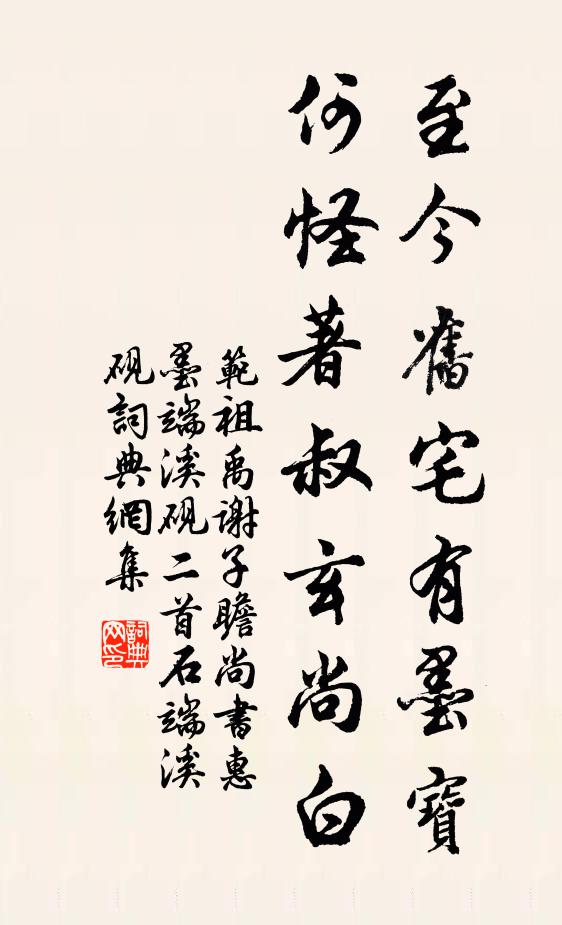 至今舊宅有墨寶
何怪著叔玄尚白
範祖禹謝子瞻尚書惠
墨端溪硯二首石端溪
硯詞典網集
詞典网印